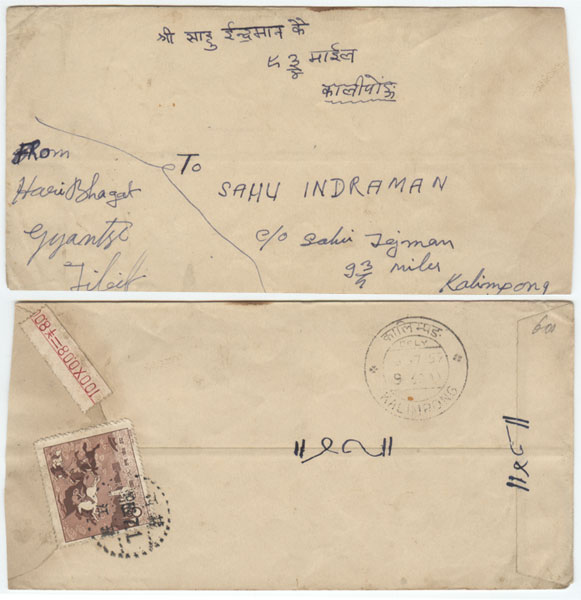 श्री साहु ईन्द्रमान कै
माईल
कालीपोङ्ग
From
Hari Bhagat
Gyantse
Tibet
To
SAHU INDRAMAN
c/o Sahu Tejman
9 3/4 miles
Kalimpong
100X008=*80
कालिम्पङ
KALIMPONG